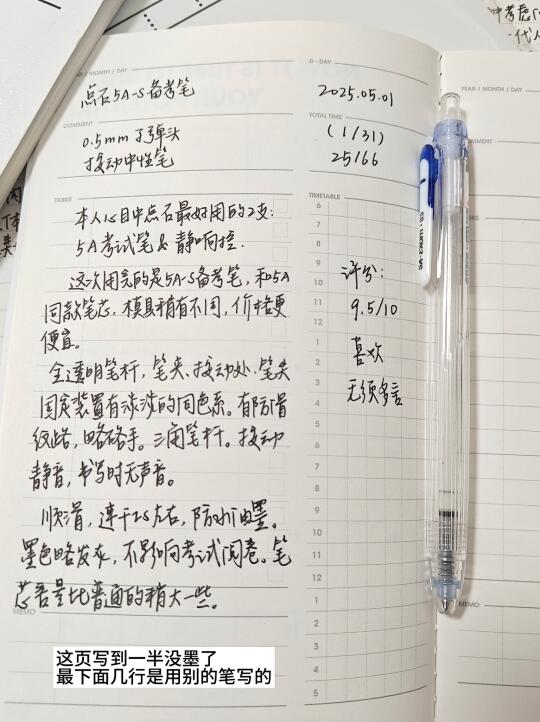 YEAR / MONTH / DAY
点石5A-S备考笔
D-DAY
2025.05.01
COMMENT
0.5mm 子弹头
按动中性笔
TOTAL TIME
(1/31)
25/66
TASKS
本人心目中点石最好用的2支:
5A考试笔&静响捨.
这次用完的是5A-S备考笔,和5A
同款笔芯,模具稍有不同,价格更
便宜。
全透明笔杆,笔夹、按动处、笔尖
固定装置有淡淡的同色系。有防滑
纹路,略硌手。三角笔杆。按动
静音,书写时无声音。
顺滑,速干2s左右,防水油墨。
墨色略发灰,不影响考试阅卷。笔
芯容量比普通的稍大一些。
TIMETABLE
6
7
8
9
10
11
12
1
2
3
4
5
6
7
8
9
10
11
12
1
2
3
4
5
评分:
9.5/10
喜欢
无须多言
MEMO
YEAR / MONTH / DAY
COMMENT
MEMO
冲考虑
代人
这页写到一半没墨了
最下面几行是用别的笔写的